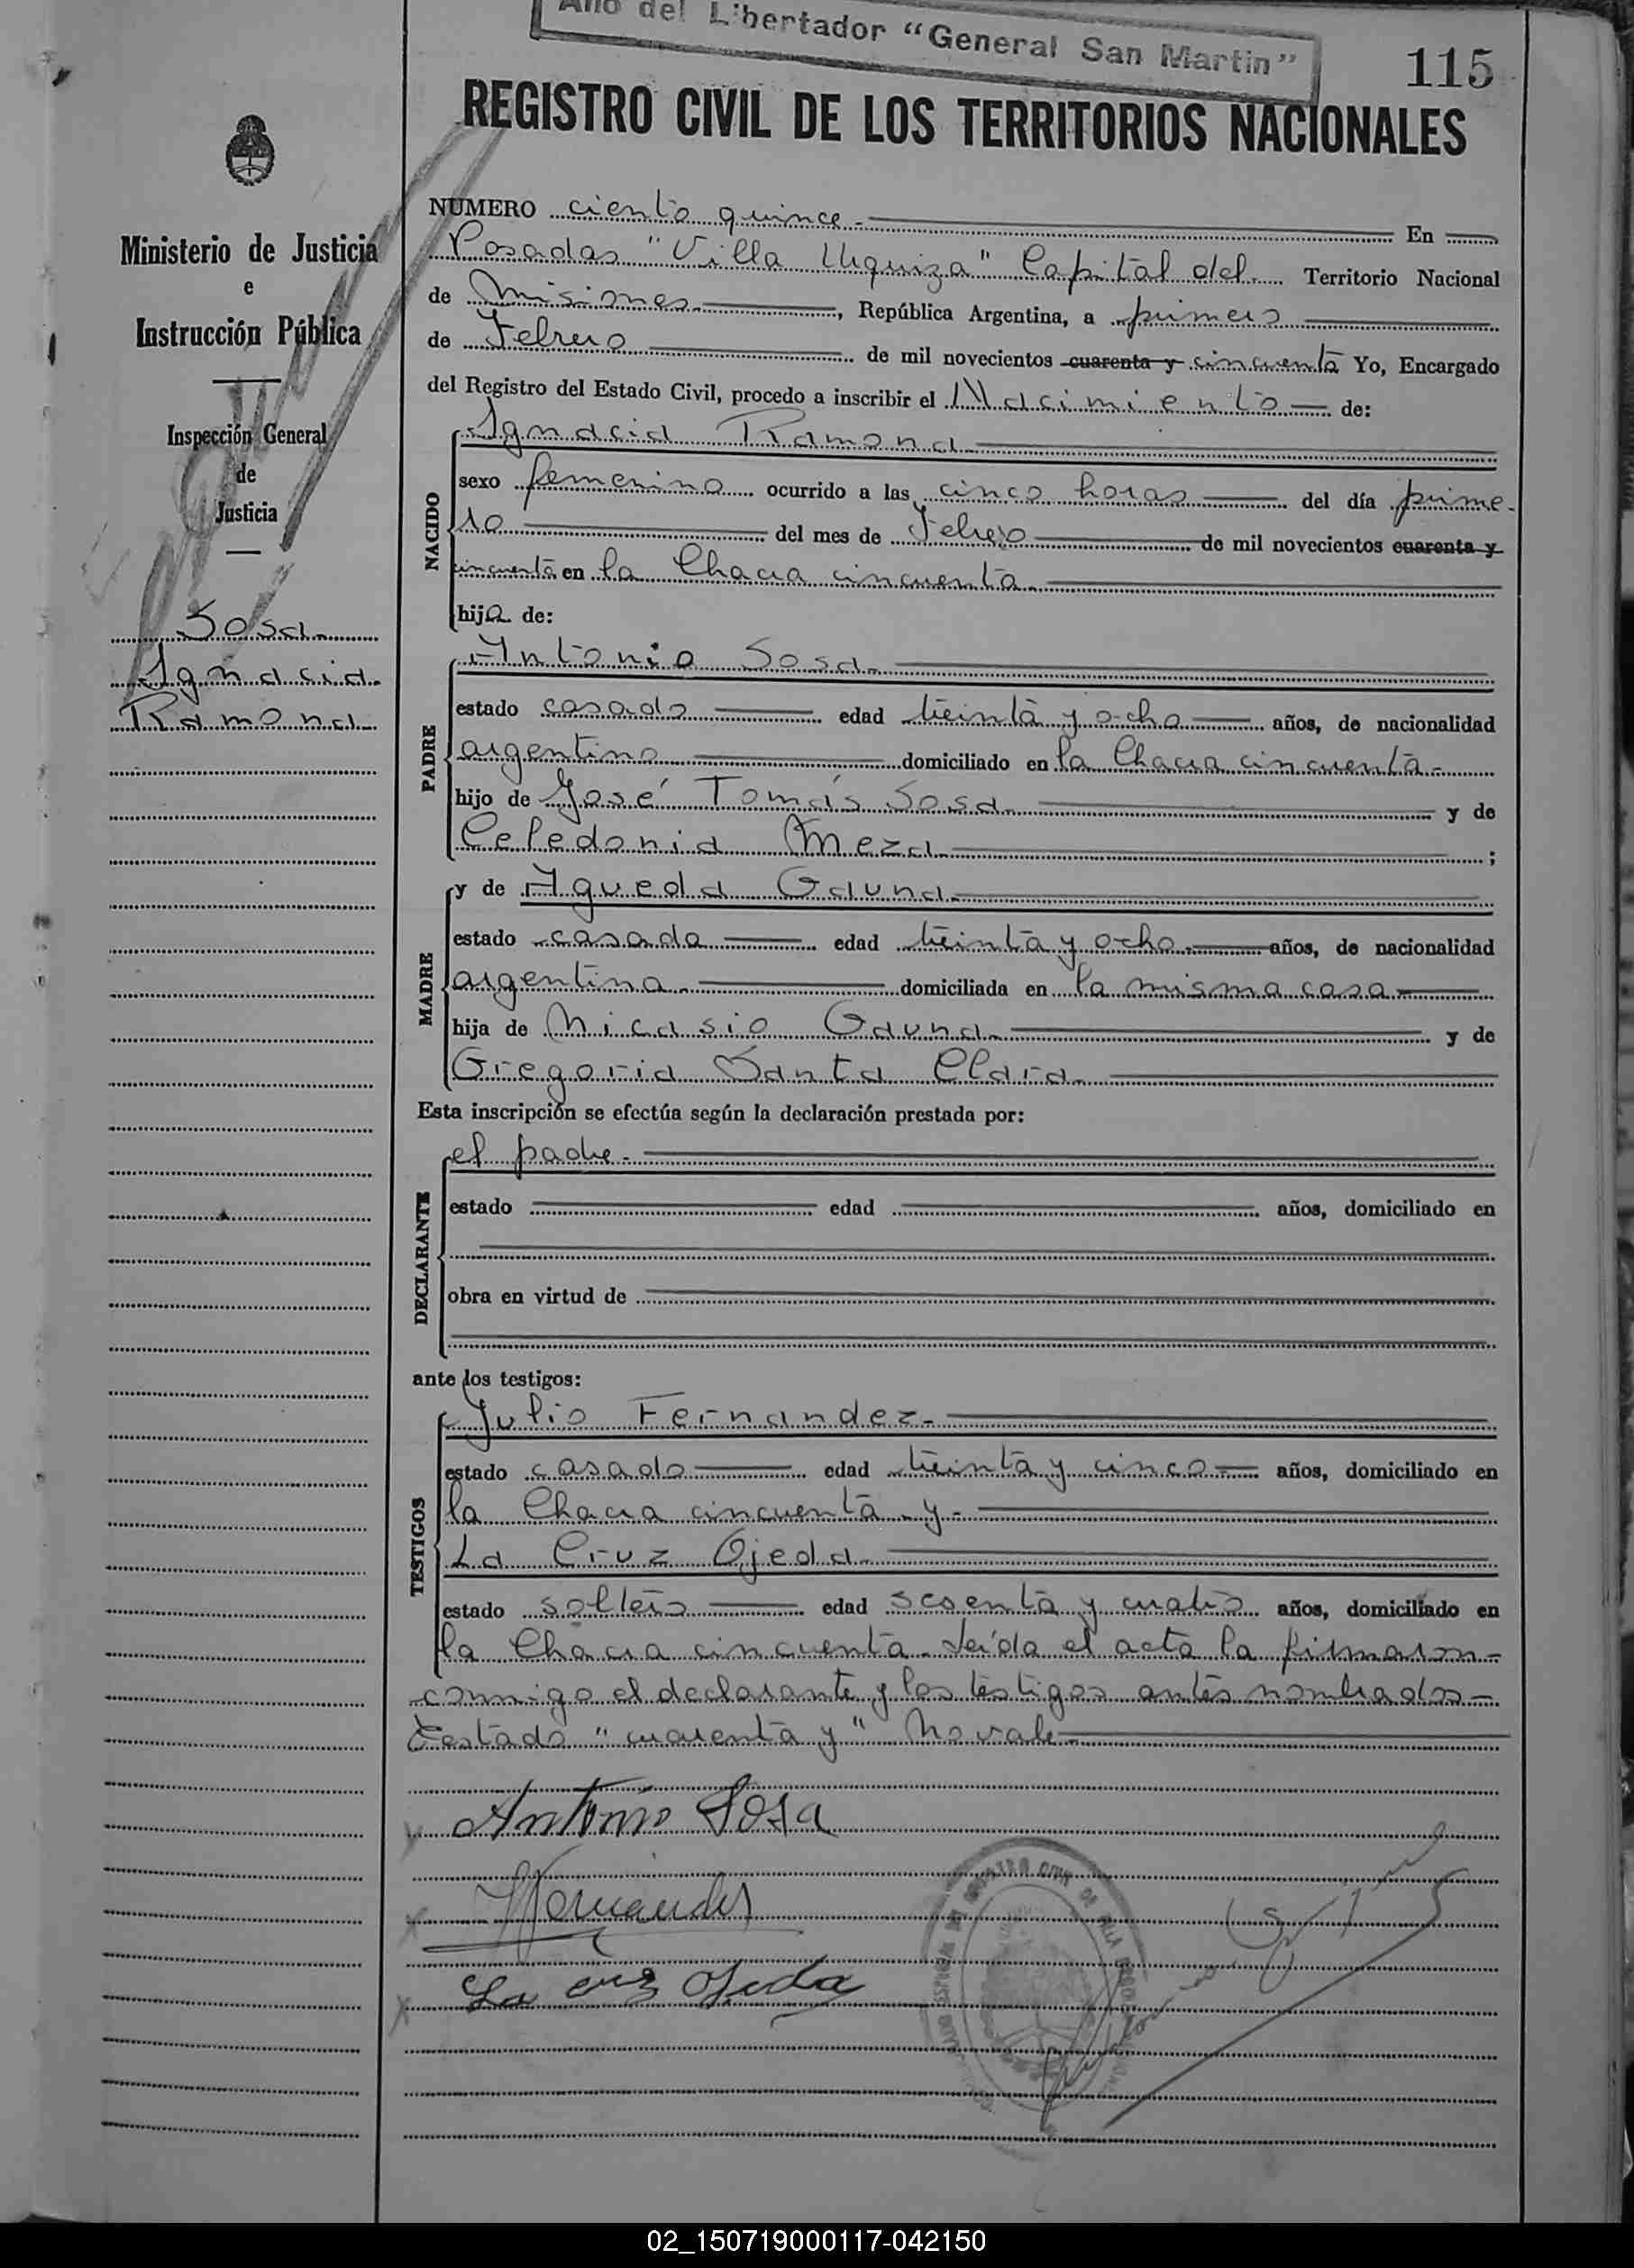 Año del Libertador "General San Martin"
115
REGISTRO CIVIL DE LOS TERRITORIOS NACIONALES
Ministerio de Justicia
e
Instrucción Pública
Inspección General
de
Justicia
Sosa
Ignacia
Ramona
NUMERO ciento quince. En
Posadas "Villa Urquiza" Capital del Territorio Nacional
de Misiones, República Argentina, a primero
de Febrero de mil novecientos cuarenta y cincuenta Yo, Encargado
del Registro del Estado Civil, procedo a inscribir el Nacimiento de:
NACIDO
Ignacia Ramona
sexo femenino ocurrido a las cinco horas del día prime-
ro del mes de Febrero de mil novecientos cuarenta y
cincuenta en la Chacra cincuenta
hija de:
PADRE
Antonio Sosa
estado casado edad treinta y ocho años, de nacionalidad
argentino domiciliado en la Chacra cincuenta
hijo de José Tomás Sosa y de
Celedonia Meza ;
MADRE
y de Agueda Gauna
estado casada edad treinta y ocho años, de nacionalidad
argentina domiciliada en la misma casa
hija de Nicasio Gauna y de
Gregoria Santa Clara
Esta inscripción se efectúa según la declaración prestada por:
DECLARANTE
el padre
estado edad años, domiciliado en
obra en virtud de
ante los testigos:
TESTIGOS
Julio Fernandez
estado casado edad treinta y cinco años, domiciliado en
la Chacra cincuenta y
La Cruz Ojeda
estado soltero edad sesenta y cuatro años, domiciliado en
la Chacra cincuenta. Leída el acta la firmaron
conmigo el declarante y los testigos antes nombrados
Testado "cuarenta y" No vale
Antonio Sosa
JFernandez
La cruz Ojeda
02_150719000117-042150